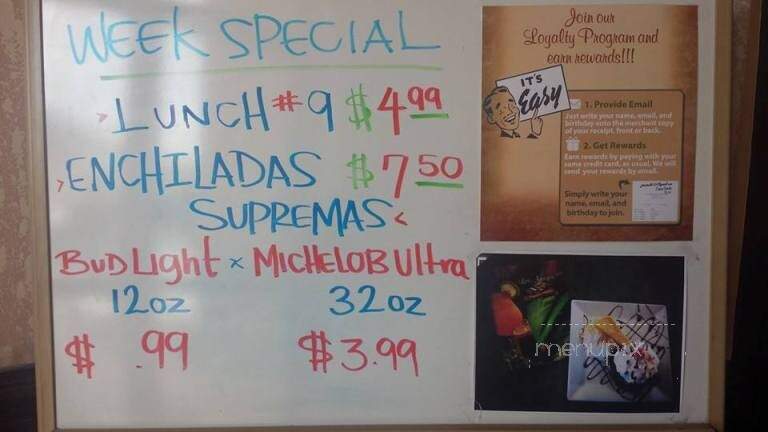 WEEK SPECIAL
> LUNCH #9 $4.99
> ENCHILADAS $7.50
SUPREMAS <
BUD Light x MICHELOB Ultra
12oz 32oz
$ .99 $3.99
Join our
Loyalty Program and
earn rewards!!!
IT'S
Easy
1. Provide Email
Just write your name, email, and
birthday onto the merchant copy
of your receipt, front or back.
2. Get Rewards
Earn rewards by paying with your
same credit card, as usual. We will
send your rewards by email.
Simply write your
name, email, and
birthday to join.
menupix